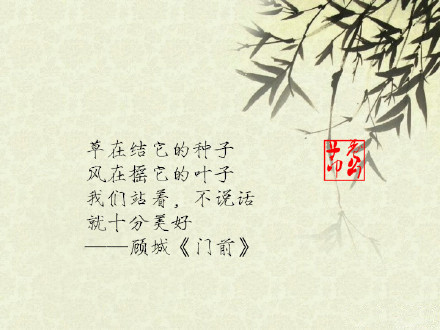 草在结它的种子
风在摇它的叶子
我们站着，不说话
就十分美好
——顾城《门前》